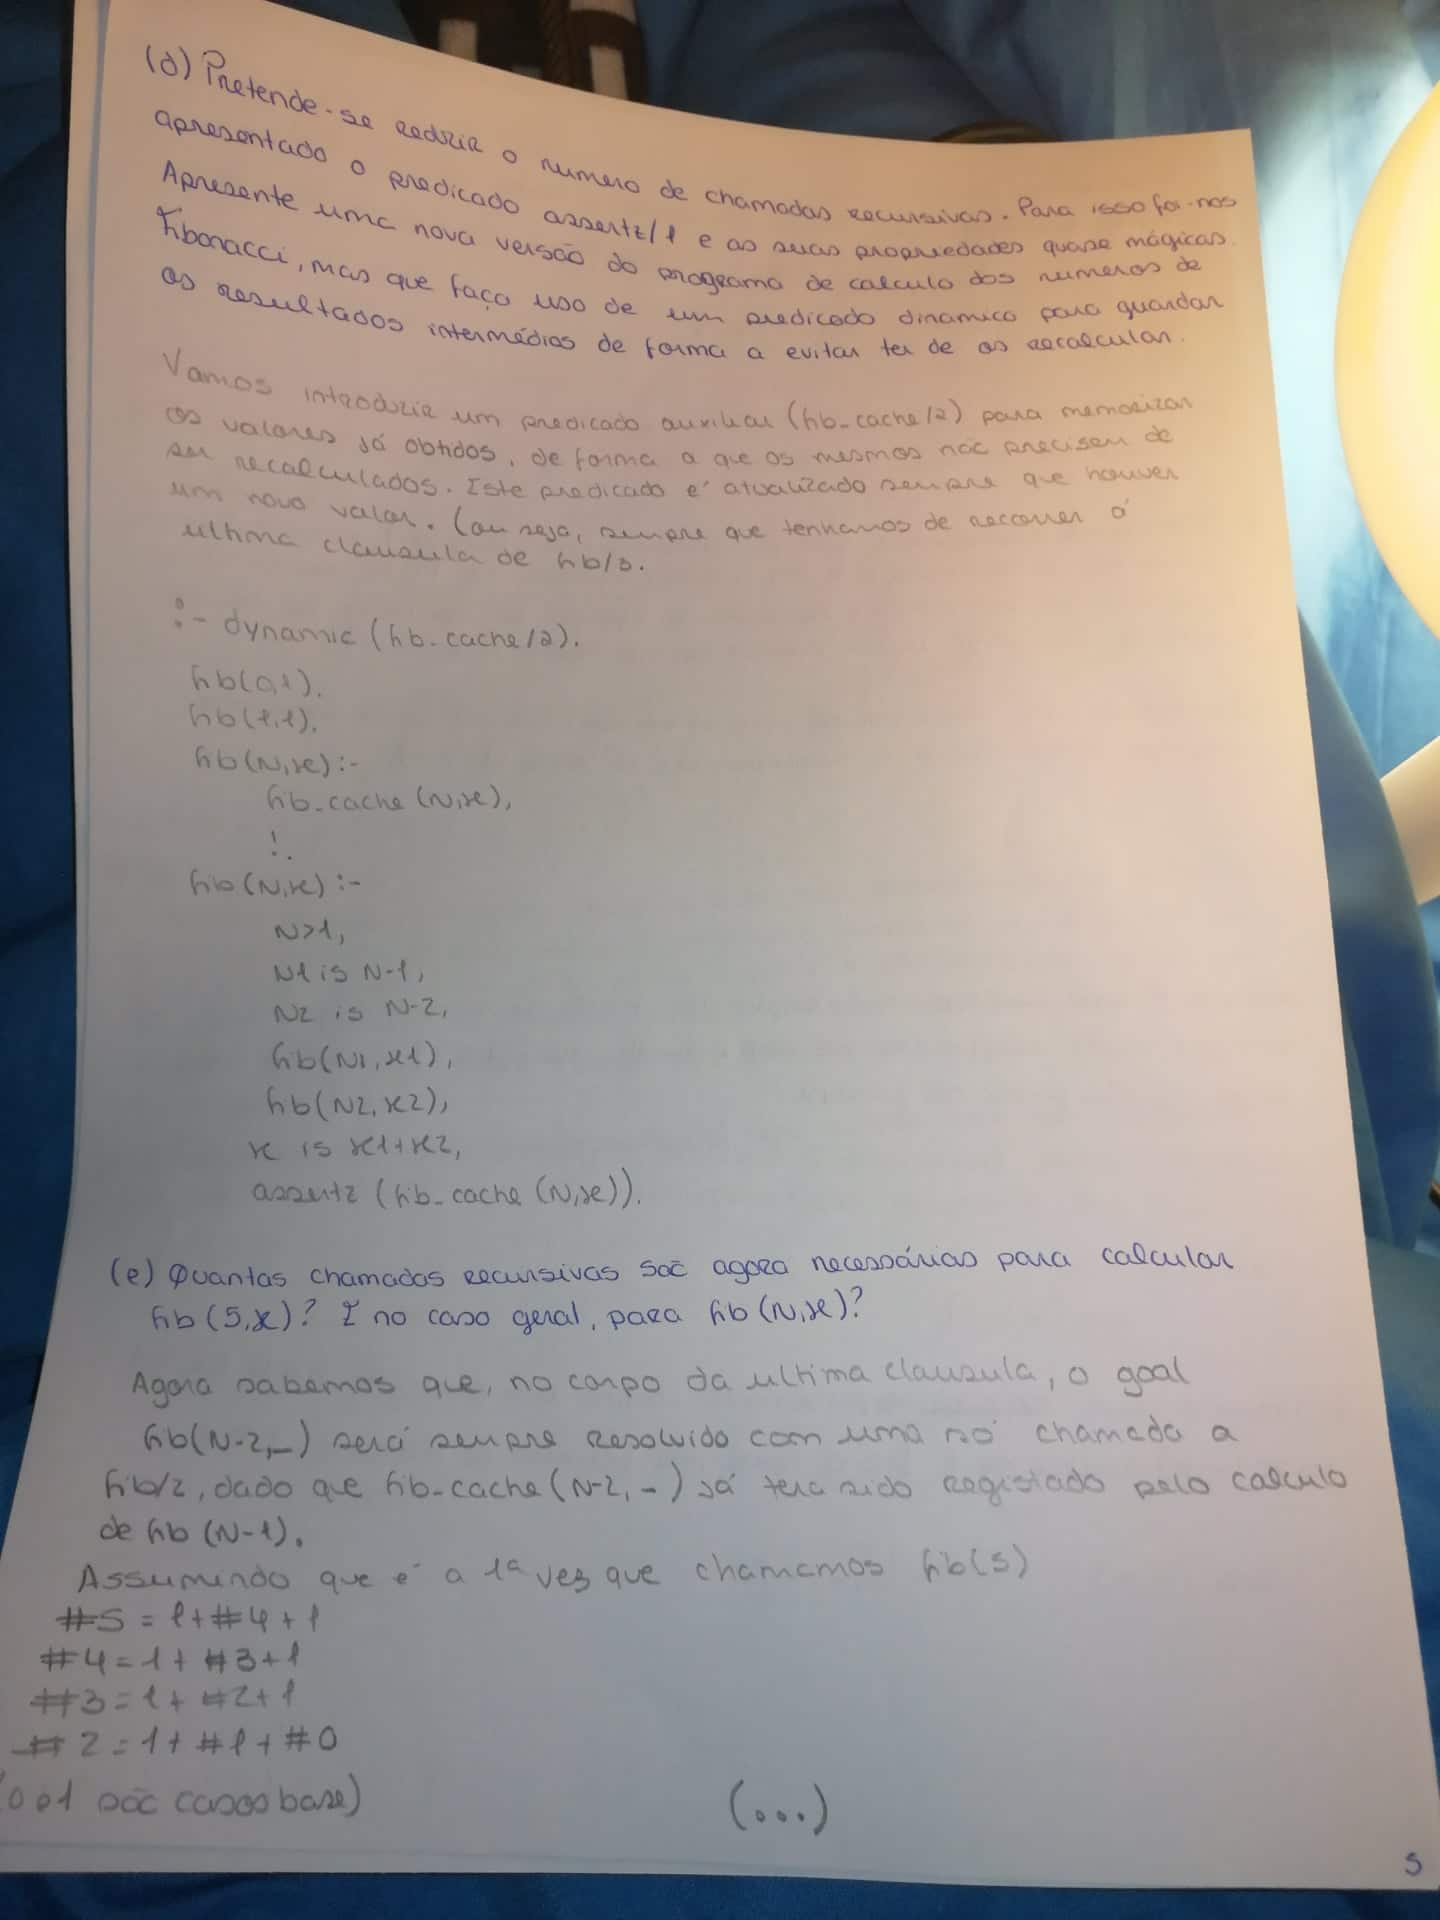 (d) Pretende-se reduzir o numero de chamadas recursivas. Para isso foi-nos
apresentado o predicado assertz/1 e as suas propriedades quase mágicas.
Apresente uma nova versão do programa de calculo dos numeros de
Fibonacci, mas que faça uso de um predicado dinamico para guardar
os resultados intermédios de forma a evitar ter de os recalcular.
Vamos introduzir um predicado auxiliar (fib_cache/2) para memorizar
os valores já obtidos, de forma a que os mesmos não precisem de
ser recalculados. Este predicado é atualizado sempre que houver
um novo valor. (ou seja, sempre que tenhamos de recorrer á
ultima clausula de fib/3.
:- dynamic (fib_cache/2).
fib(0,1).
fib(1,1).
fib(N,x):-
fib_cache(N,x),
!.
fib(N,x):-
N>1,
N1 is N-1,
N2 is N-2,
fib(N1,x1),
fib(N2,x2),
x is x1+x2,
assertz (fib_cache (N,x)).
(e) Quantas chamadas recursivas são agora necessárias para calcular
fib(5,x)? E no caso geral, para fib(N,x)?
Agora sabemos que, no corpo da ultima clausula, o goal
fib(N-2,_) será sempre resolvido com uma só chamada a
fib/2, dado que fib_cache(N-2,_) já tera sido registado pelo calculo
de fib (N-1).
Assumindo que é a 1ª vez que chamamos fib(5)
#5 = 1+#4+1
#4=1+#3+1
#3=1+#2+1
#2=1+#1+#0
(0 e 1 são casos base)
(...)
5